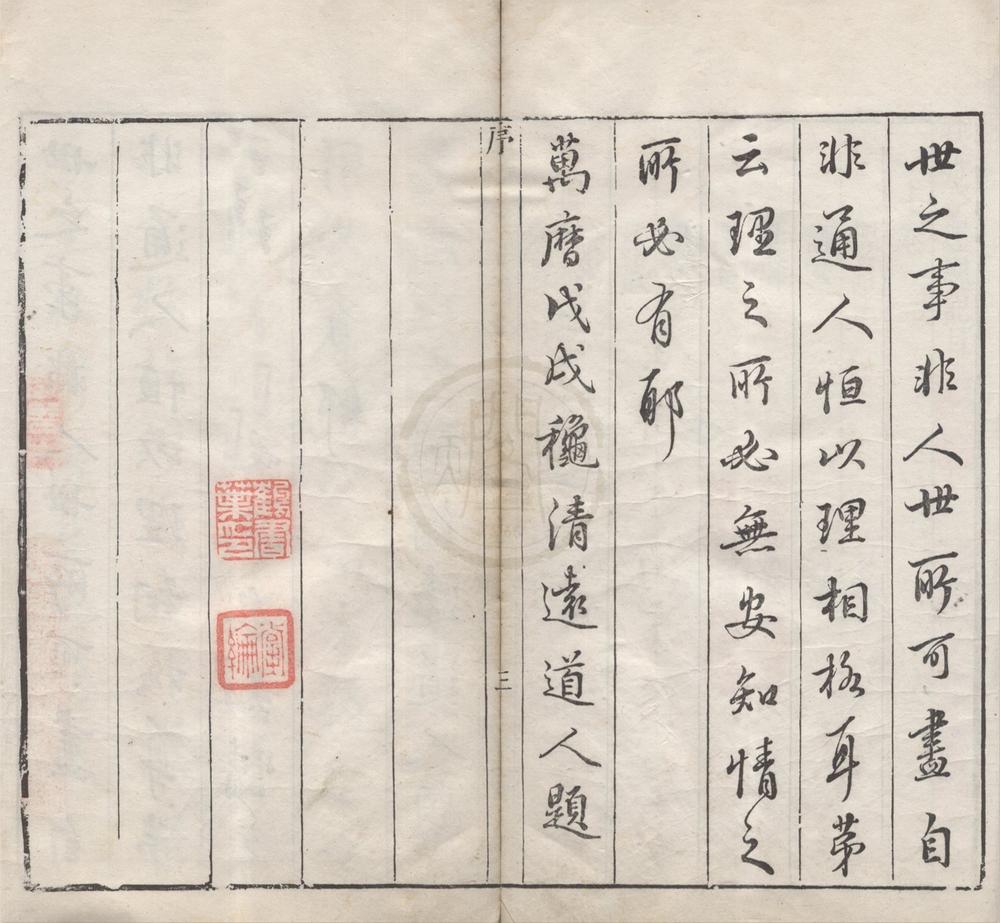 世之事非人世所可盡自
非通人恒以理相格耳苐
云理之所必無安知情之
所必有耶
萬曆戊戌穐清遠道人題
序
三
觀書
葉印